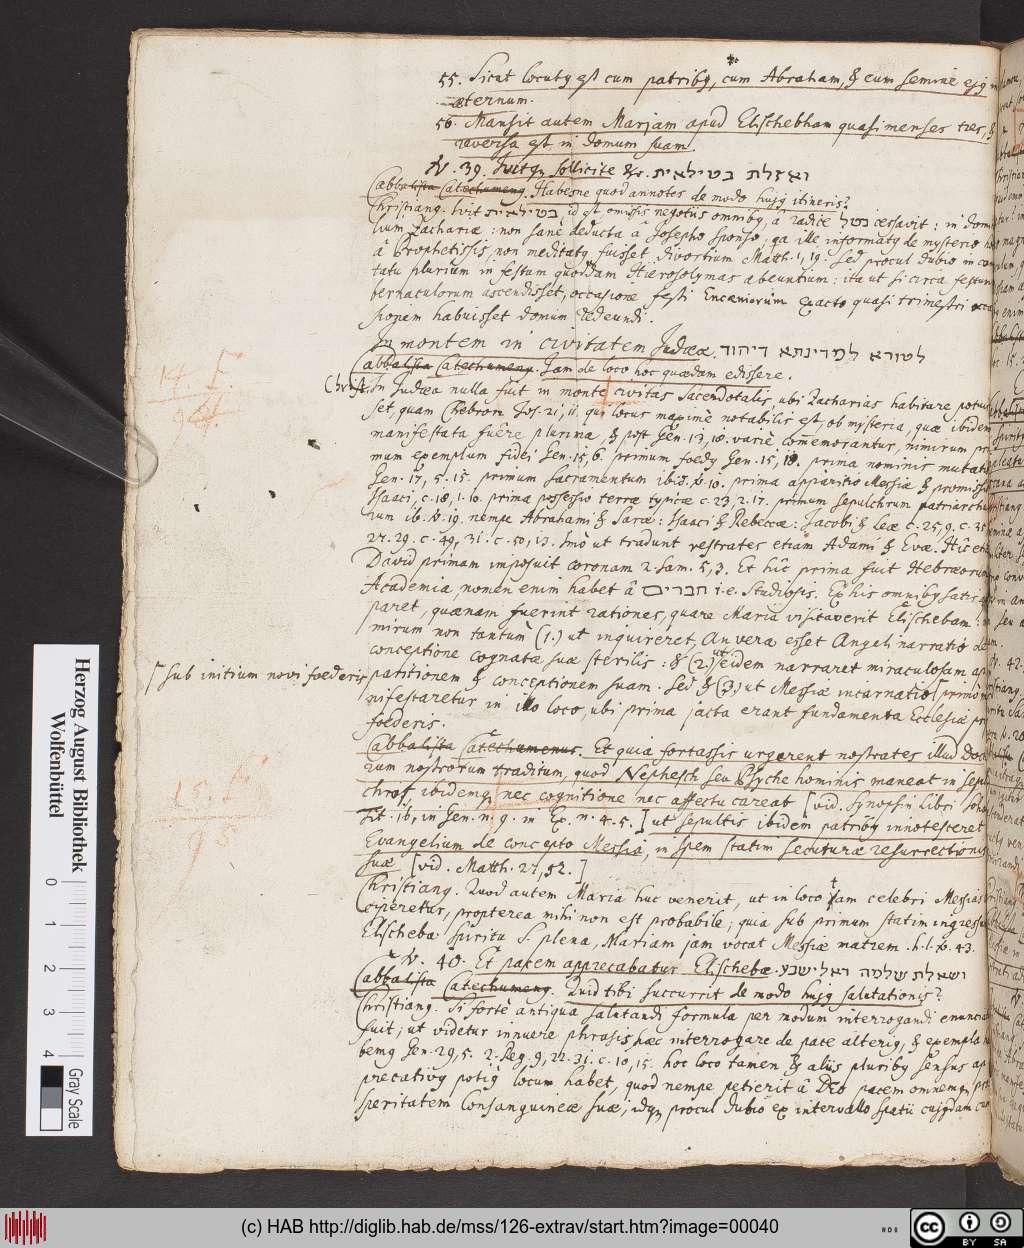 55. Sicut locutus est cum patribus, cum Abraham, & cum semine ejus in
æternum.
56. Mansit autem Marjam apud Elischebham quasi menses tres, &
reversa est in domum suam.
V. 39. Ivitqꝫ sollicite &c. ואזלת בטילאית
Cabbalista Catechumenꝰ. Habesne quod annotes de modo hujꝰ itineris?
Christianꝰ. Ivit בטילאית id est, omissis negotiis omnibꝰ, à radice בטל cessavit: in domi
lium Zachariæ: non sane deducta à Josepho sponso; qa ille informatꝰ de mysterio hoc
à Prophetissis, non meditatꝰ fuisset divortium Matth. 1, 19. Sed procul dubio in co
tatu plurium in festum quoddam Hierosolymas abeuntium: ita ut si circa festum
bernaculorum ascendisset, occasione festi Encæniorum exacto quasi trimestri occa
sionem habuisset domum redeundi.
In montem in civitatem Judææ. לטורא למדינתא דיהוד
Cabbalista Catechumenꝰ. Jam de loco hoc quædam edissere.
Christ. In Judæa nulla fuit in monte civitas Sacerdotalis, ubi Zacharias habitare potuis
set, quam Chebron Jos. 21, 11. qui locus maximè notabilis est, ob mysteria, quæ ibidem
manifestata fuêre plurima, & post Gen. 13, 18. variè commemorantur, nimirum pri
mum exemplum fidei Gen. 15, 6. primum foedus Gen. 15, 18. prima nominis mutatio
Gen. 17, 5. 15. primum sacramentum ibid. v. 10. prima apparitio Messiæ & promissio
Isaaci, c. 18, 1. 10. prima possessio terræ typicæ c. 23, 2. 17. primum sepulchrum patriarcha
rum ib. v. 19. nempe Abrahami & Saræ: Isaaci & Rebeccæ: Jacobi & Leæ c. 25, 9. c. 35,
27. 29. c. 49, 31. c. 50, 13. Imò ut tradunt vestrates etiam Adami & Evæ. Hic etiam
David primam imposuit coronam 2. Sam. 5, 3. Et hîc prima fuit Hebræorum
Academia, nomen enim habet à חברים i. e. Studiosis. Ex his omnibꝰ satis ap
paret, quænam fuerint rationes, quare Maria visitaverit Elischebam: ni
mirum non tantum (1.) ut inquireret, An vera esset Angeli narratio de
conceptione cognatæ suæ sterilis: & (2.) ut eidem narraret miraculosam ap
paritionem & conceptionem suam: Sed & (3.) ut Messiæ incarnatio primo ma
┌ sub initium novi foederis,
nifestaretur in illo loco, ubi prima jacta erant fundamenta Ecclesiæ pr
foederis.
Cabbalista Catechumenus. Et quia fortassis urgerent nostrates illud Docto
rum nostrorum traditum, quod Nephesch seu Psyche hominis maneat in sepul
chro, & ibidemqꝫ nec cognitione nec affectu careat [vid. Synopsin Libri Sohar
Tit. 16, in Gen. n. 9. in Ex. n. 4. 5.] ut sepultis ibidem patribꝰ innotesceret
Evangelium de concepto Messia, in spem statim secuturæ resurrectionis
suæ [vid. Matth. 27, 52.]
Christianꝰ. Quod autem Maria huc venerit, ut in loco tam celebri Messias
ciperetur, propterea mihi non est probabile; quia sub primum statim ingressum
Elischeba Spiritu S. plena, Mariam jam vocat Messiæ matrem. h. l. v. 43.
V. 40. Et pacem apprecabatur Elischebæ. ושאלת שלמה דאלישבע
Cabbalista Catechumenꝰ. Quid tibi succurrit de modo hujꝰ salutationis?
Christianꝰ. Si fortè antiqua salutandi formula per modum interrogandi enunciata
fuit; ut videtur innuere phrasis hæc interrogare de pace alteriꝰ, & exempla ha
bemꝰ Gen. 29, 5. 2. Reg. 9, 22. 31. c. 10, 15. hoc loco tamen & aliis pluribꝰ sensus ap
precativꝰ potiꝰ locum habet, quod nempe petierit à DEO pacem omnemqꝫ pro
speritatem Consanguineæ suæ; idqꝫ procul dubio ex intervallo spatii cujꝰdam
14. F.
94.
15. F
95
Herzog August Bibliothek
Wolfenbüttel
0 1 2 3 4
Gray Scale
(c) HAB http://diglib.hab.de/mss/126-extrav/start.htm?image=00040
cc BY SA